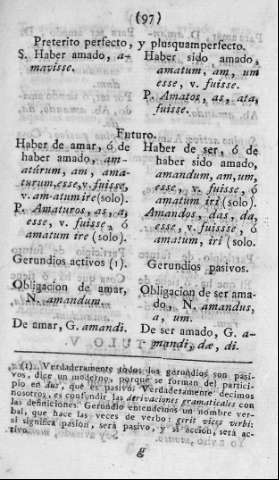 (97)
Preterito perfecto, y plusquamperfecto.
S. Haber amado, a-
mavisse.
Haber sido amado,
amatum, am, um
esse, v. fuisse.
P. Amatos, as, ata,
fuisse.
Futuro.
Haber de amar, ó de
haber amado, am-
atúrum, am, ama-
turum, esse, v. fuisse,
v. amatum ire (solo).
P. Amaturos, as, a,
esse, v. fuisse, ó
amatum ire (solo).
Haber de ser, ó de
haber sido amado,
amandum, am, um,
esse, v. fuisse, ó
amatum iri (solo).
Amandos, das, da,
esse, v. fuisse, ó
amatum, iri (solo).
Gerundios activos (1).
Gerundios pasivos.
Obligacion de amar,
N. amandum.
Obligacion de ser ama-
do, N. amandus,
a, um.
De amar, G. amandi.
De ser amado, G. a-
mandi, dæ, di.
(1) Verdaderamente todos los gerundios son pasi-
vos, dice un moderno, porque se forman del partici-
pio en dus, que es pasivo. Verdaderamente decimos
nosotros, es confundir las derivaciones gramaticales con
las definiciones. Gerundio entendemos un nombre ver-
bal, que hace las veces de verbo: gerit vices verbi:
si significa pasion, será pasivo, y si accion, será ac-
tivo.
g